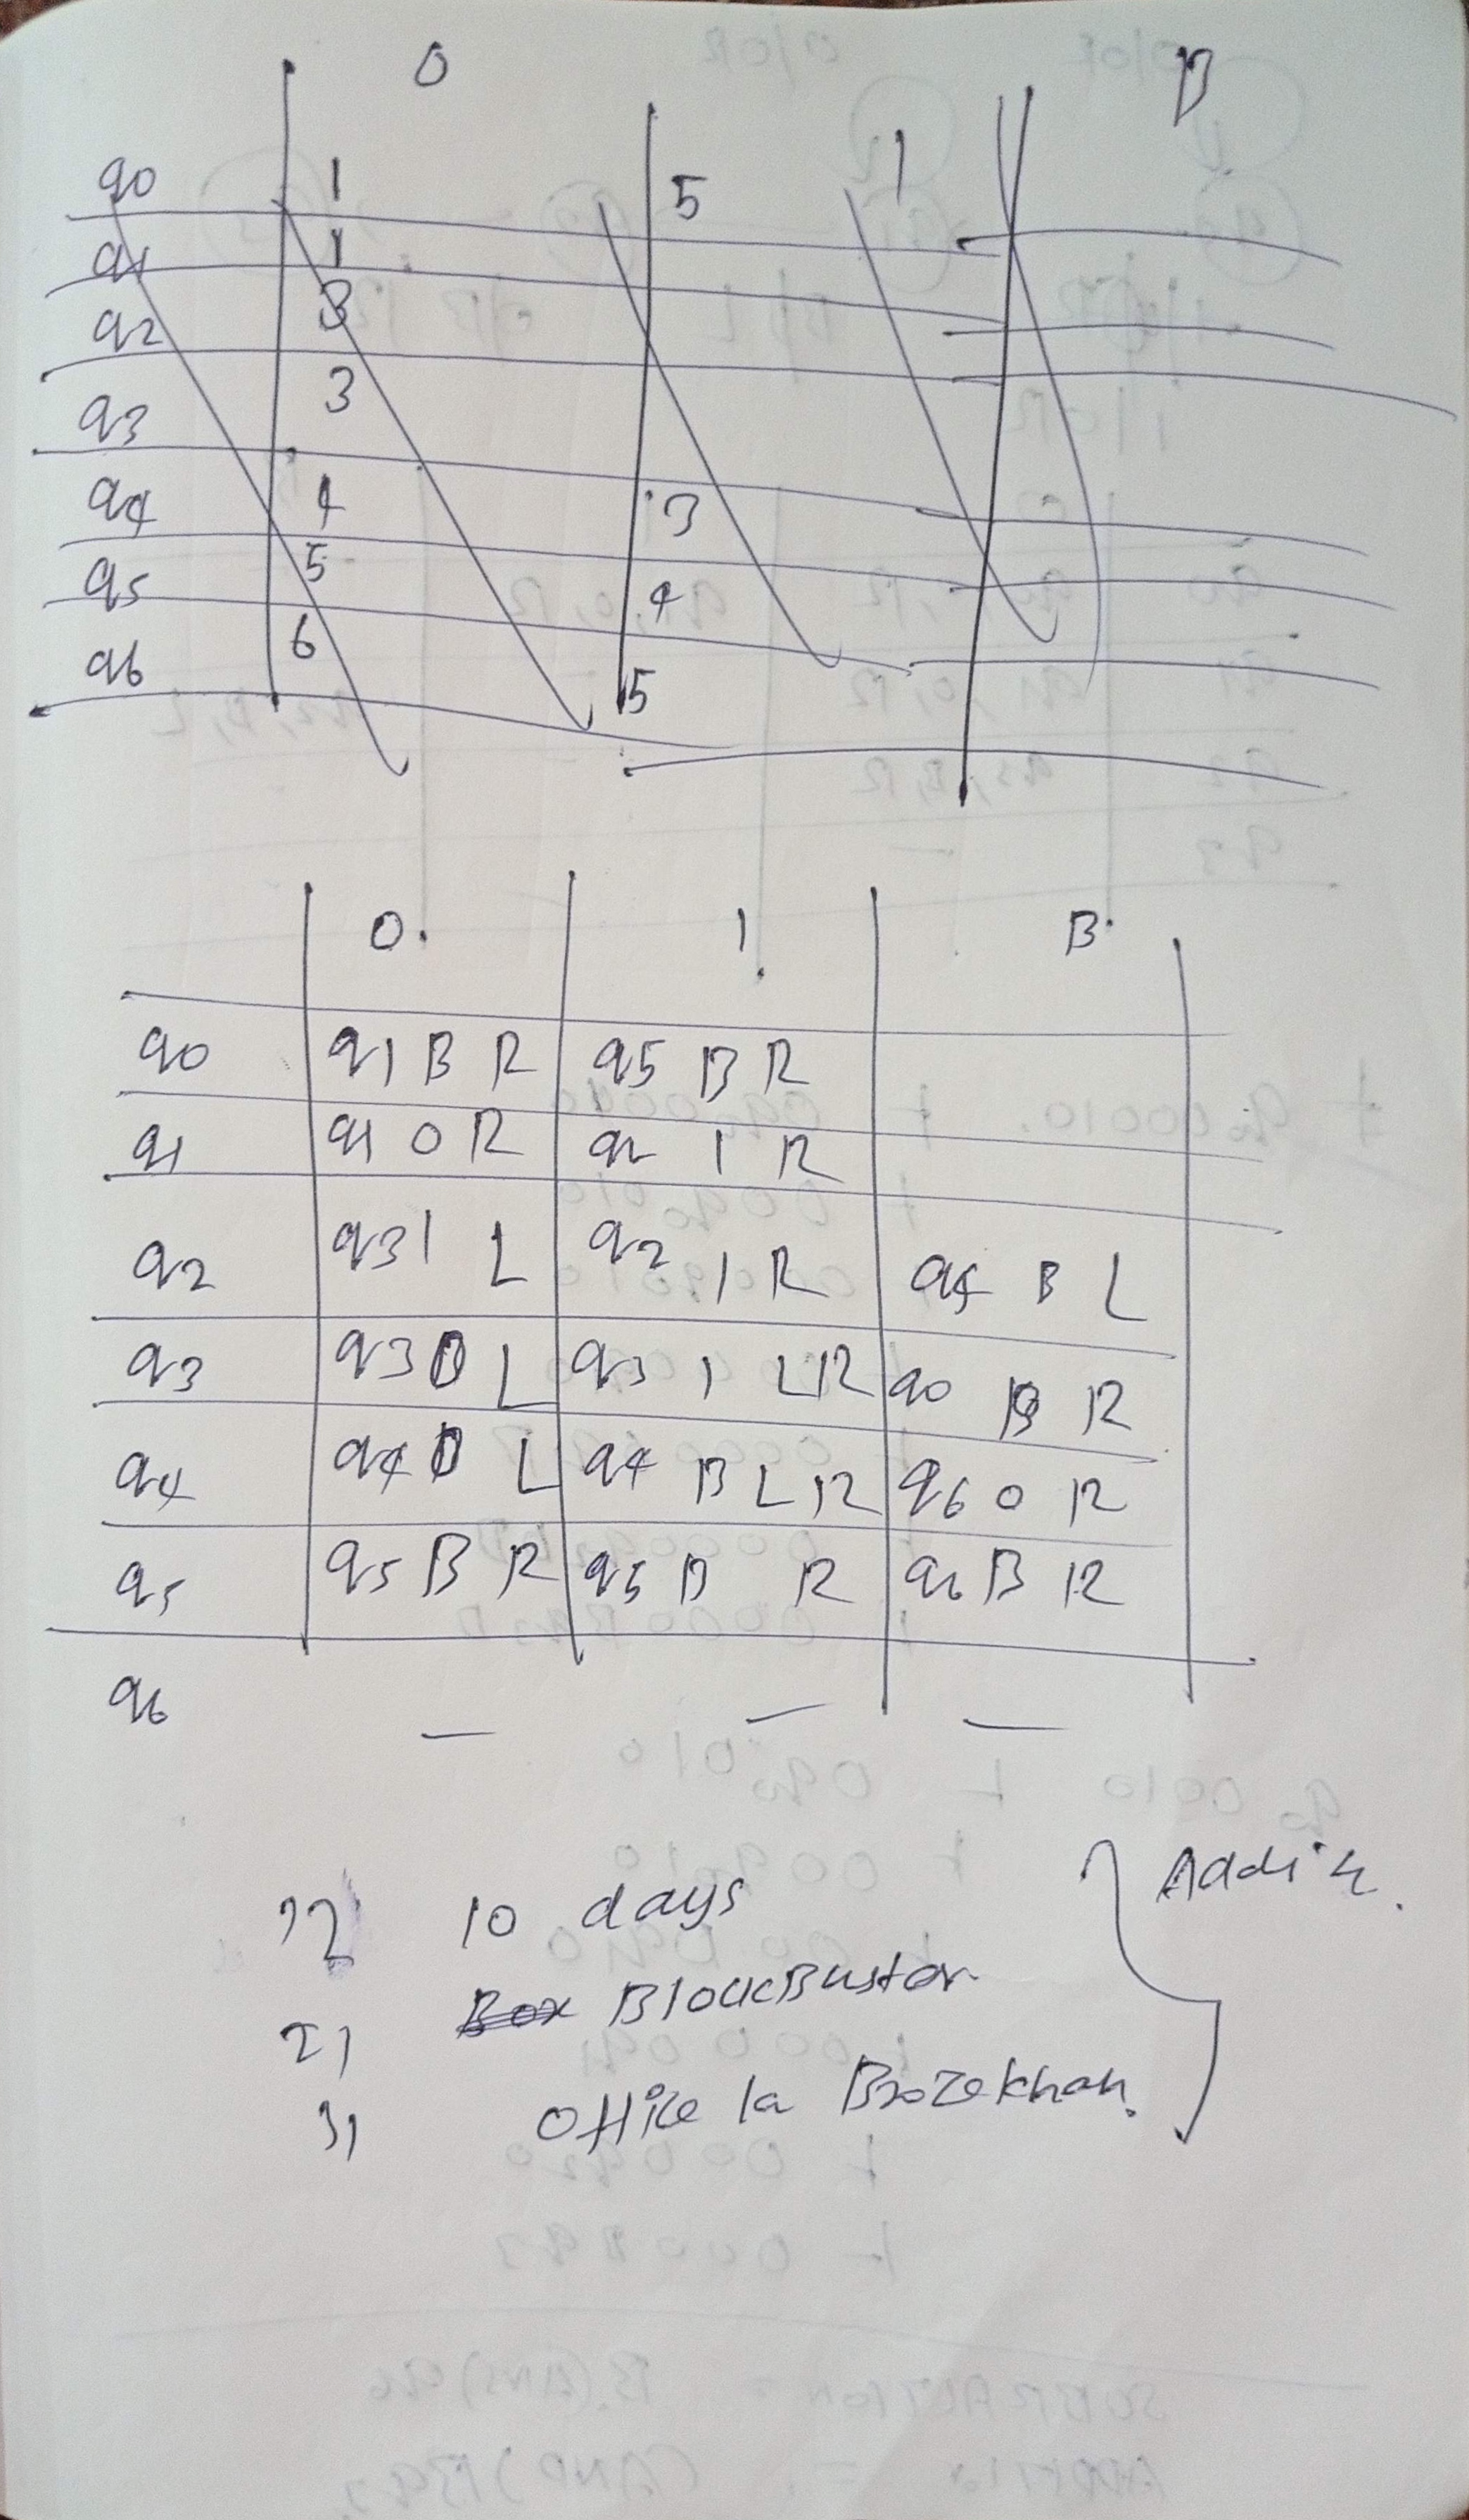 0 1 B
q0 1 5
q1 1
q2 3
q3 3
q4 4 3
q5 5 4
q6 6 5
0. 1 B
q0 q1 B R q5 B R
q1 q1 0 R q2 1 R
q2 q3 1 L q2 1 R q4 B L
q3 q3 0 L q3 1 L R q0 B R
q4 q4 0 L q4 B L R q6 0 R
q5 q5 B R q5 B R q6 B R
q6 — — —
1) 10 days
2) Box BlockBuster
3) office la